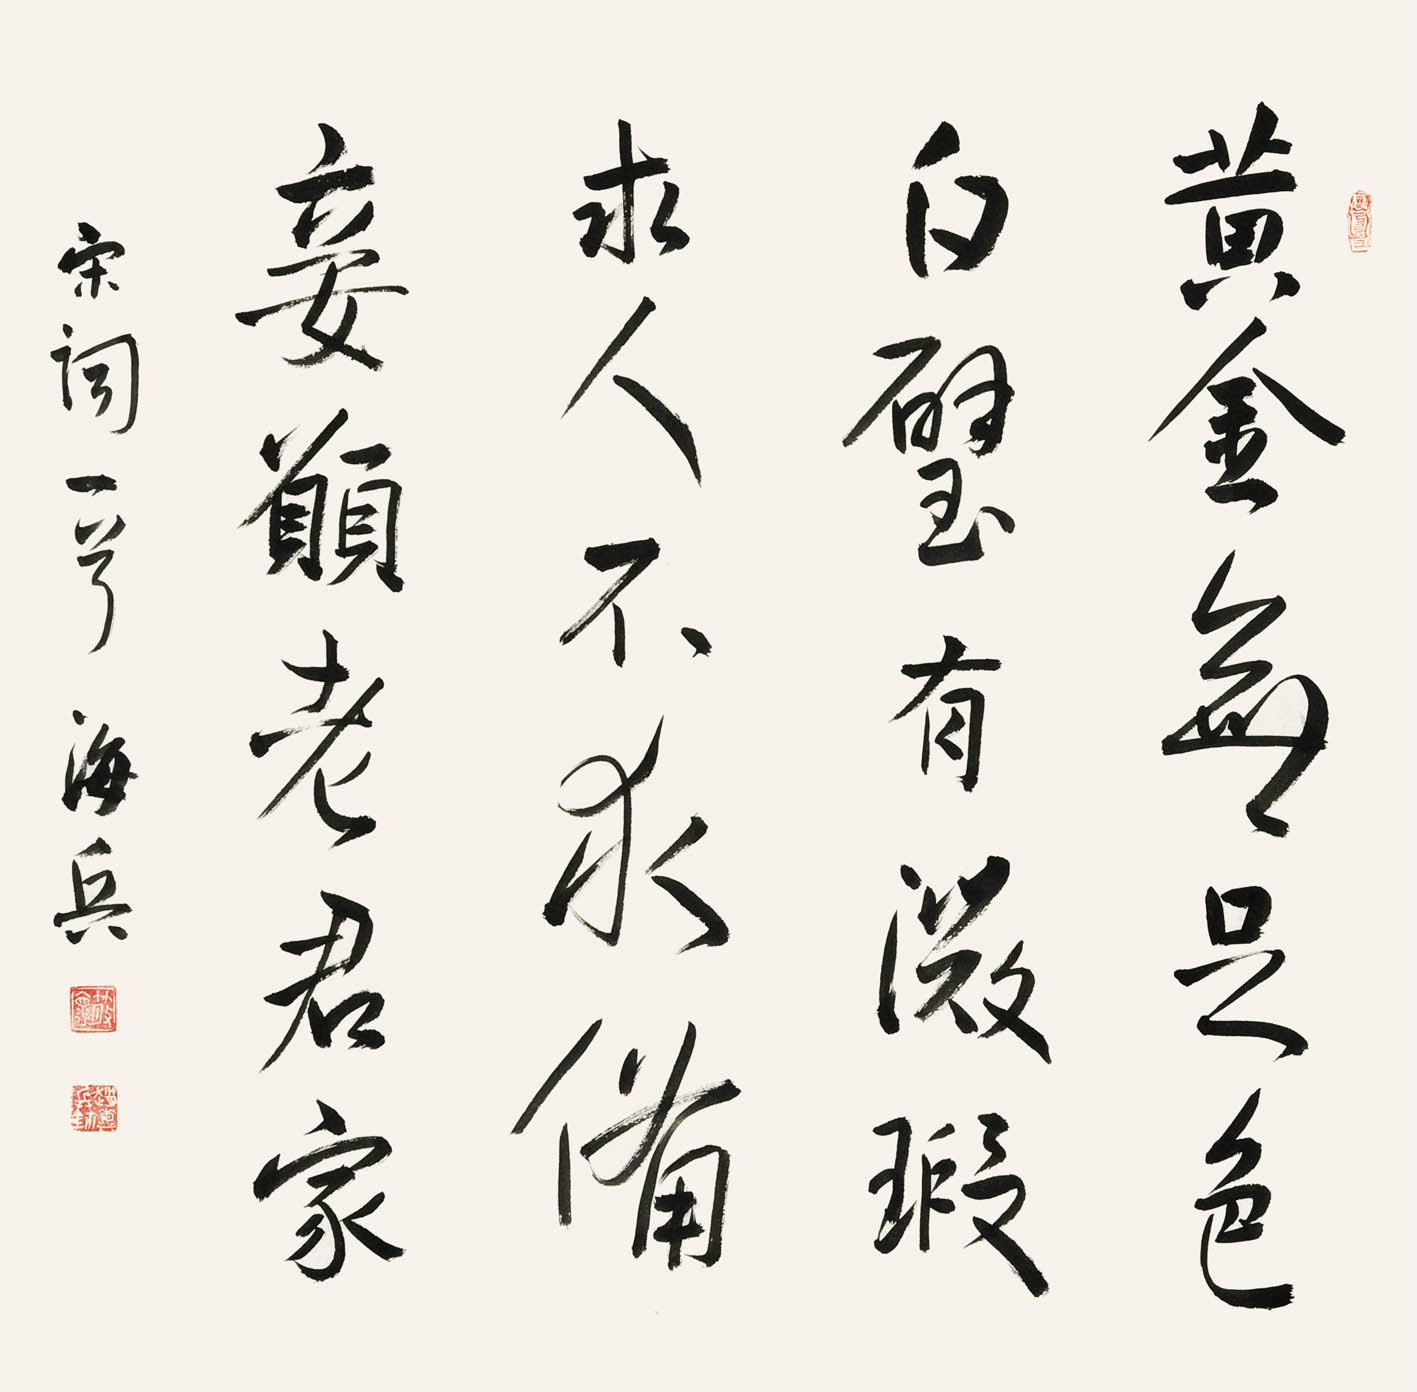 黄金無足色
白璧有瑕
求人不求備
妾願老君家
宋詞一首 海兵